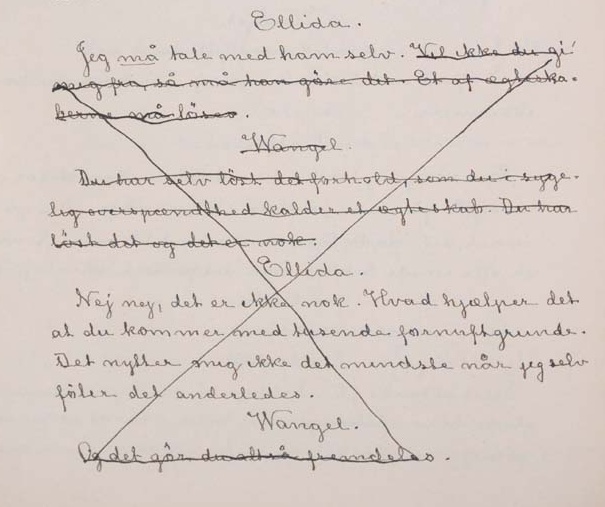 Ellida.
Jeg må tale med ham selv. Vil ikke du gi'
mig fra, så må han göre det. Et af ægteska-
berne må löses.
Wangel.
Du har selv löst det forhold, som du i syge-
lig overspændthed kalder et ægteskab. Du har
löst det og det er nok.
Ellida.
Nej nej, det er ikke nok. Hvad hjælper det
at du kommer med tusende fornuftgrunde.
Det nytter mig ikke det mindste når jeg selv
föler det anderledes.
Wangel.
Og det gör du altså fremdeles.